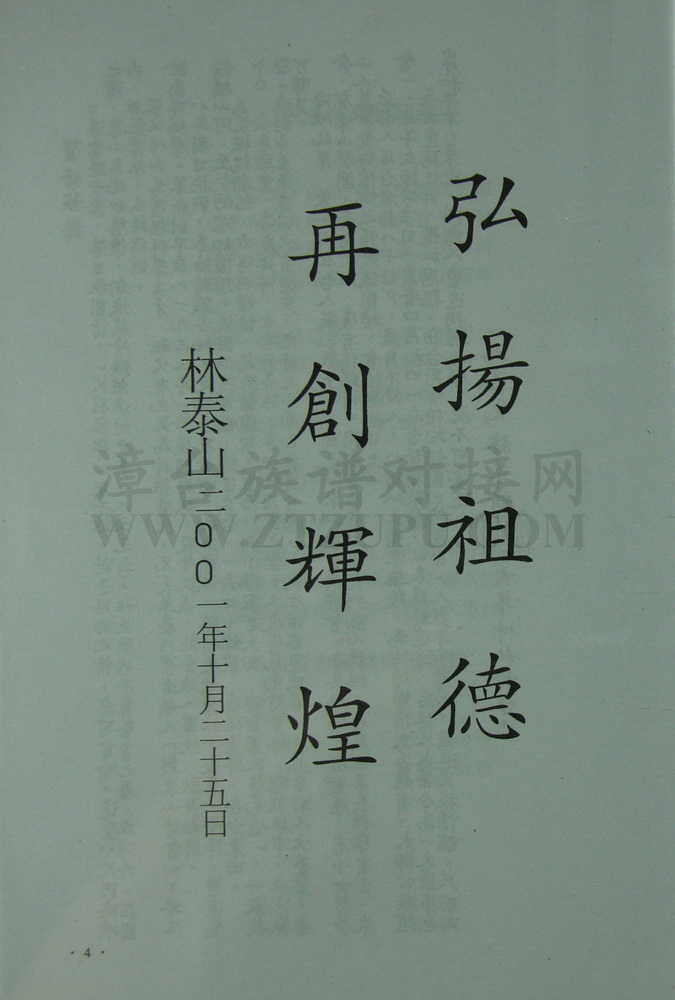 弘揚祖德
再創輝煌
林泰山 二00一年十月二十五日
漳台族谱对接网
WWW.ZTZUPU.COM
· 4 ·